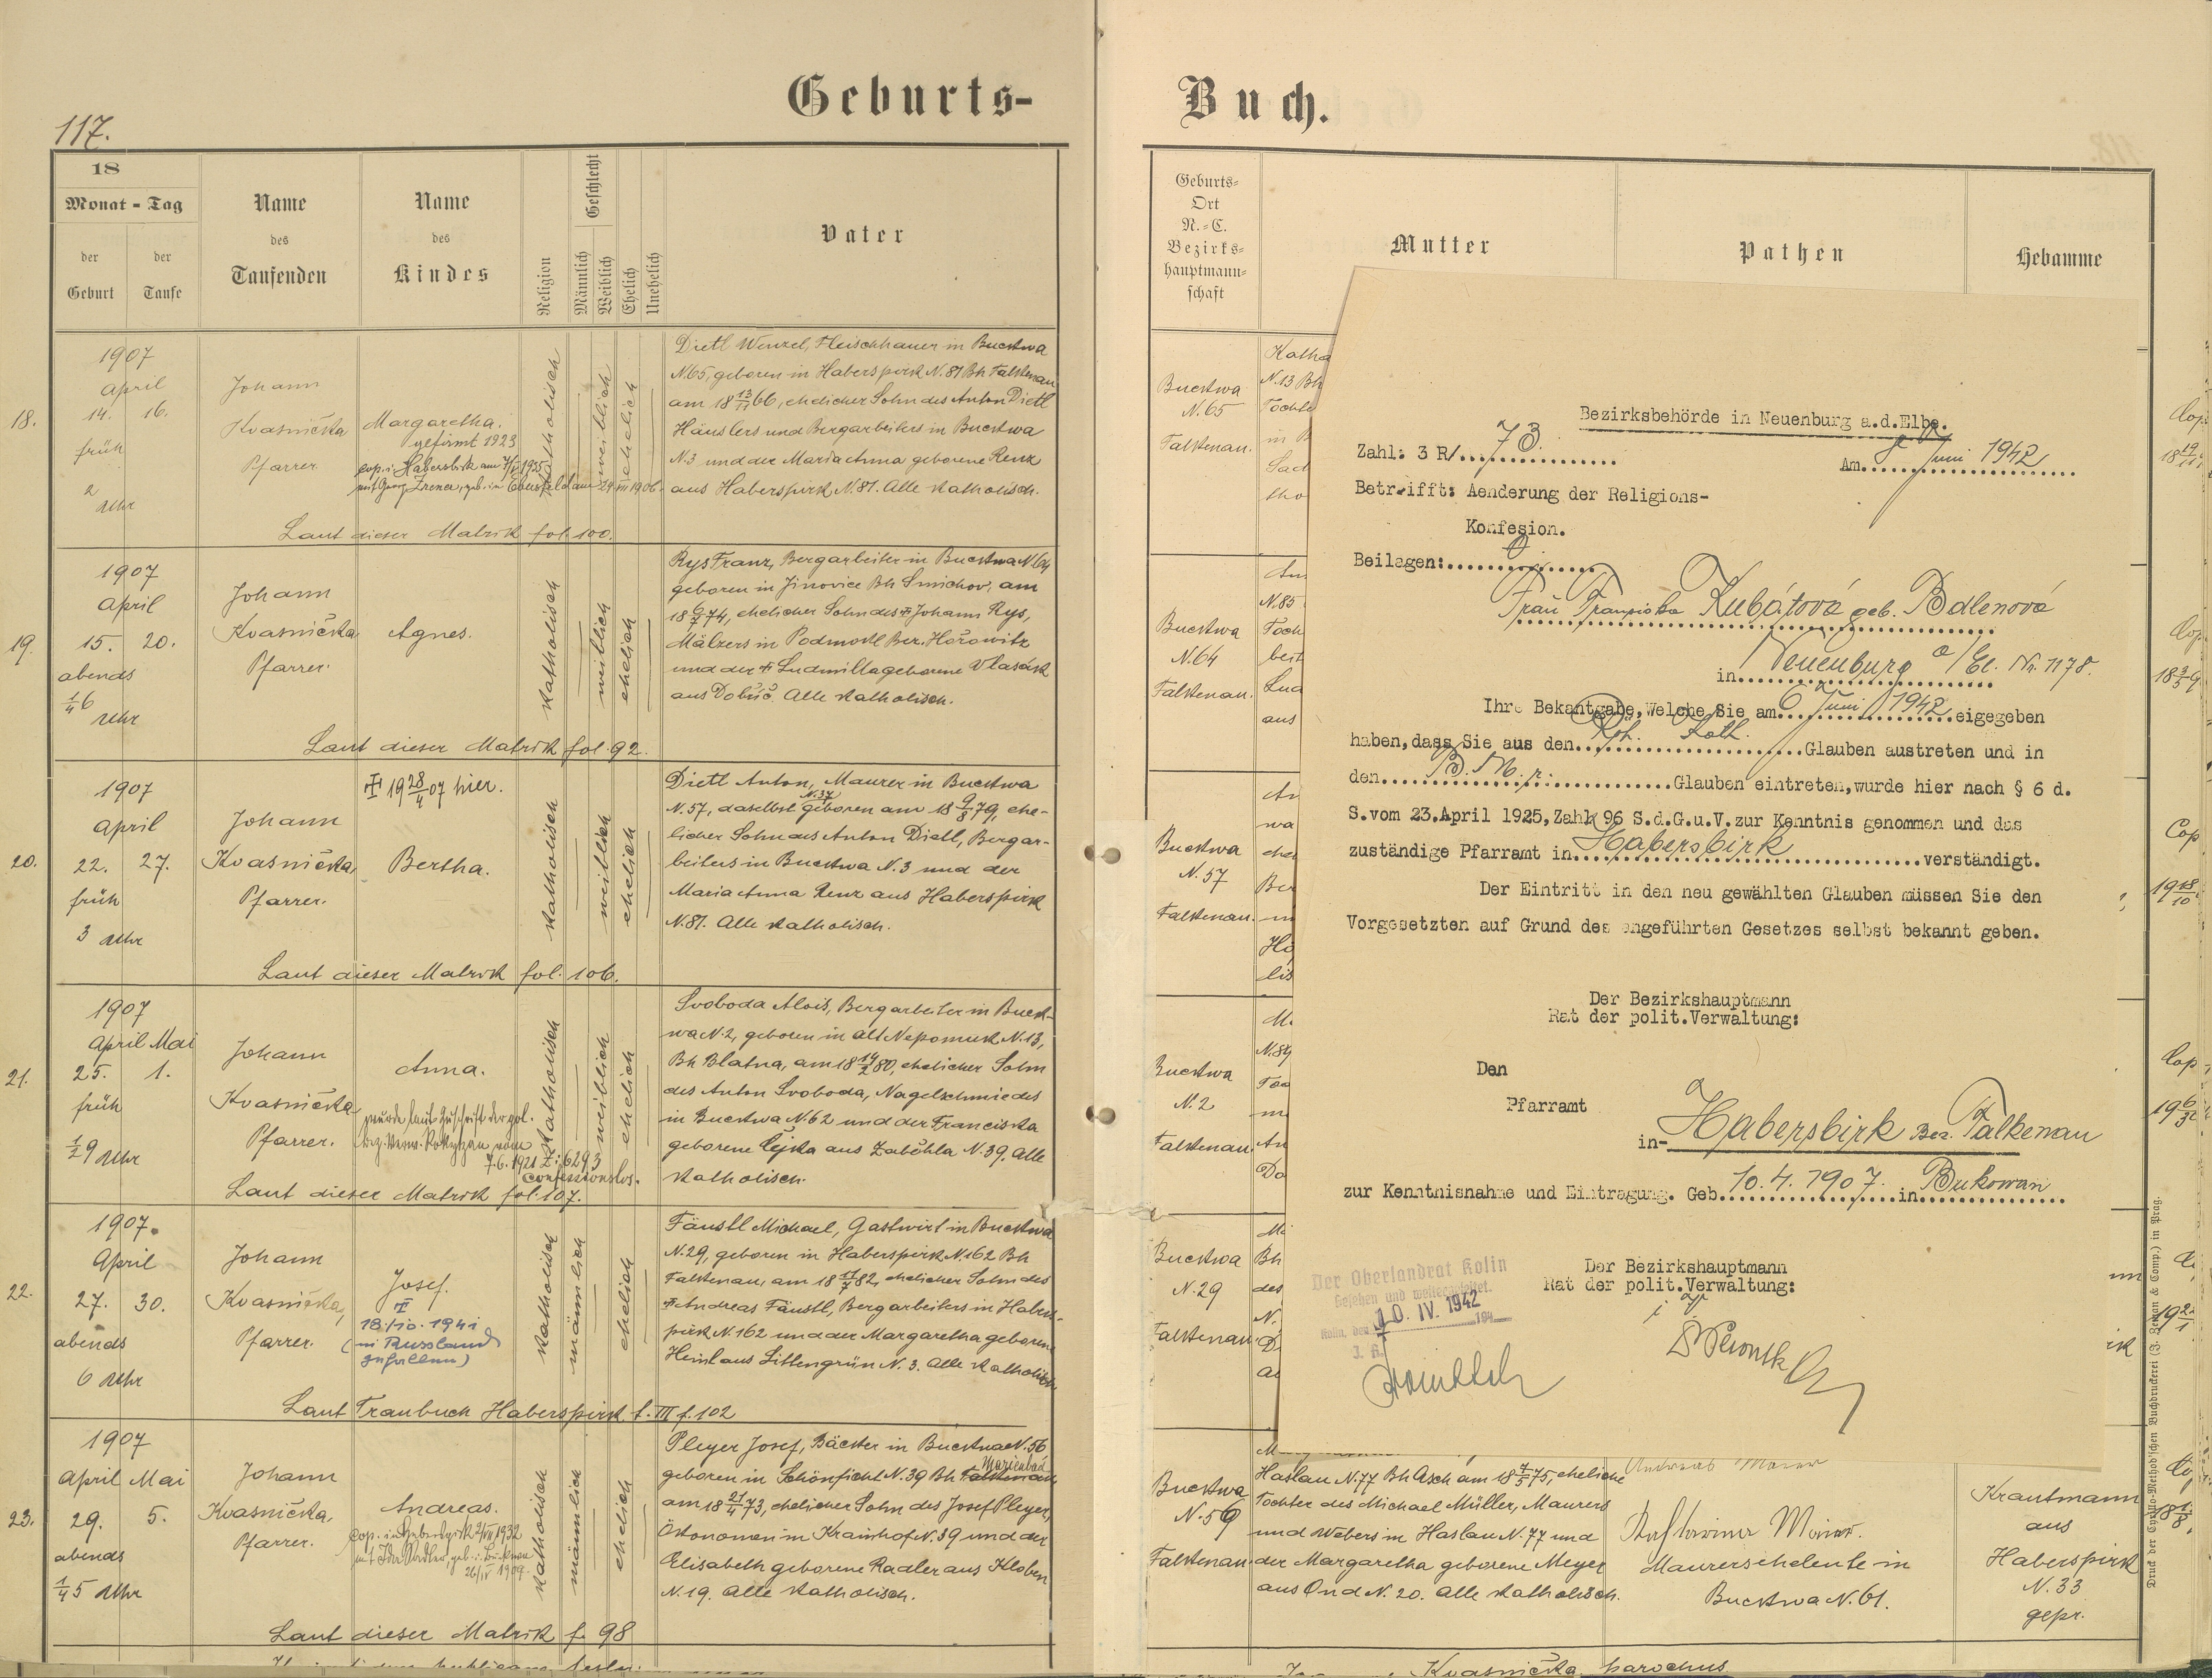 Geburts-
117.
18
Monat - Tag
der Geburt
der Taufe
Name des Taufenden
Name des Kindes
Religion
Geschlecht
Männlich
Weiblich
Ehelich
Unehelich
Vater
18.
1907
April
14. 16.
früh
2
Uhr
Johann
Kvasnička
Pfarrer.
Margaretha.
gefirmt 1923
cop. i. Habersbirk am
katholisch
weiblich
ehelich
Dietl Wenzel, Fleischhauer in Buckwa
N. 65, geboren in Haberspirk N. 81 Bh Falkenau
am 18 13/11 66, ehelicher Sohn des Anton Dietl
Häuslers und Bergarbeiters in Buckwa
N. 3 und der Maria Anna geborene Renz
aus Haberspirk N. 81. Alle katholisch.
Laut dieser Matrik fol. 100.
19.
1907
April
15. 20.
abends
1/4 6
Uhr
Johann
Kvasnička
Pfarrer.
Agnes.
katholisch
weiblich
ehelich
Rys Franz, Bergarbeiter in Buckwa N. 64
geboren in Jinovice Bh Smichov, am
18 6/7 74, ehelicher Sohn des + Johann Rys,
Mälzers in Podmokl Bez. Hořowitz
und der + Ludmilla geborene Vlasák
aus Dobřič. Alle katholisch.
Laut dieser Matrik fol. 92.
20.
1907
April
22. 27.
früh
3 Uhr
Johann
Kvasnička,
Pfarrer.
+ 19 28/4 07 hier.
Bertha.
katholisch
weiblich
ehelich
Dietl Anton, Maurer in Buckwa
N. 57, daselbst N. 37 geboren am 18 9/8 79, ehe-
licher Sohn des Anton Dietl, Bergar-
beiters in Buckwa N. 3 und der
Maria Anna Renz aus Haberspirk
N. 81. Alle katholisch.
Laut dieser Matrik fol. 106.
21.
1907
April Mai
25. 1.
früh
1/2 9 Uhr
Johann
Kvasnička
Pfarrer.
Anna.
wurde laut Zuschrift der pol.
Bez. Verw. Rokytzan vom
7.6.1921 Z: 6293
confessionslos.
katholisch
weiblich
ehelich
Svoboda Alois, Bergarbeiter in Buck-
wa N. 2, geboren in Alt Nepomuk N. 13,
Bh Blatna, am 18 14/2 80, ehelicher Sohn
des Anton Svoboda, Nagelschmiedes
in Buckwa N. 62 und der Franciska
geborene Čejka aus Zaběhla N. 39. Alle
katholisch.
Laut dieser Matrik fol. 107.
22.
1907.
April
27. 30.
abends
6 Uhr
Johann
Kvasnička,
Pfarrer.
Josef.
+
18./10. 1941
(in Russland
gefallen)
katholisch
männlich
ehelich
Fäustl Michael, Gastwirt in Buckwa
N. 29, geboren in Haberspirk N. 162 Bh
Falkenau, am 18 17/7 82, ehelicher Sohn des
+ Andreas Fäustl, Bergarbeiters in Habers-
pirk N. 162 und der Margaretha geborene
Heinl aus Littengrün N. 3. Alle katholisch
Laut Traubuch Haberspirk t. III f. 102
23.
1907
April Mai
29. 5.
abends
1/4 5 Uhr
Johann
Kvasnička,
Pfarrer.
Andreas.
cop. in Habersbirk
katholisch
männlich
ehelich
Pleyer Josef, Bäcker in Buckwa N. 56
geboren in Schönficht N. 39 Bh Falkenau Marienbad
am 18 21/4 73, ehelicher Sohn des Josef Pleyer,
Ökonomen in Krainhof N. 39 und der
Elisabeth geborene Radler aus Kloben
N. 19. Alle katholisch.
Laut dieser Matrik f. 98
Buch.
Geburts-
Ort
N.-C.
Bezirks-
hauptmann-
schaft
Mutter
Pathen
Hebamme
Buckwa
N. 65
Falkenau.
Buckwa
N. 64
Falkenau.
Buckwa
N. 57
Falkenau.
Buckwa
N. 2
Falkenau
Buckwa
N. 29
Falkenau
Bezirksbehörde in Neuenburg a.d.Elbe.
Zahl: 3 R/ 73.
Am 8 Juni 1942
Betreifft: Aenderung der Religions-
Konfesion.
Beilagen:
Frau Franziska Kubátová geb.
in Neuenburg a/El. Nr. 1178.
Ihre Bekantgabe, Welche Sie am 6 Juni 1942 eigegeben
haben, dass Sie aus den Röm. Kath. Glauben austreten und in
den B. M. r. Glauben eintreten, wurde hier nach § 6 d.
S. vom 23. April 1925, Zahl 96 S.d.G.u.V. zur Kenntnis genommen und das
zuständige Pfarramt in Habersbirk verständigt.
Der Eintritt in den neu gewählten Glauben müssen Sie den
Vorgesetzten auf Grund des angeführten Gesetzes selbst bekannt geben.
Der Bezirkshauptmann
Rat der polit.Verwaltung:
Den
Pfarramt
in- Habersbirk Bez. Falkenau
zur Kenntnisnahme und Eintragung. Geb. 10.4.1907. in Bukowan
Der Bezirkshauptmann
Rat der polit.Verwaltung:
Der Oberlandrat Kolin
Gesehen und weitergeleitet.
Kolin, den 10. IV. 1942
J. A.
Buckwa
N. 56
Falkenau
Haslau N. 77 Bh Asch am 18 4/5 75, eheliche
Tochter des Michael Müller, Maurers
und Webers in Haslau N. 77 und
der Margaretha geborene Meyer
aus Ond N. 20. Alle katholisch.
Andreas Maier
Maurerseheleute in
Buckwa N. 61.
Krautmann
aus
Haberspirk
N. 33
gepr.
Kvasnička parochus
Druck der Cyrillo-Method'schen Buchdruckerei (J. Zeman & Comp.) in Prag.